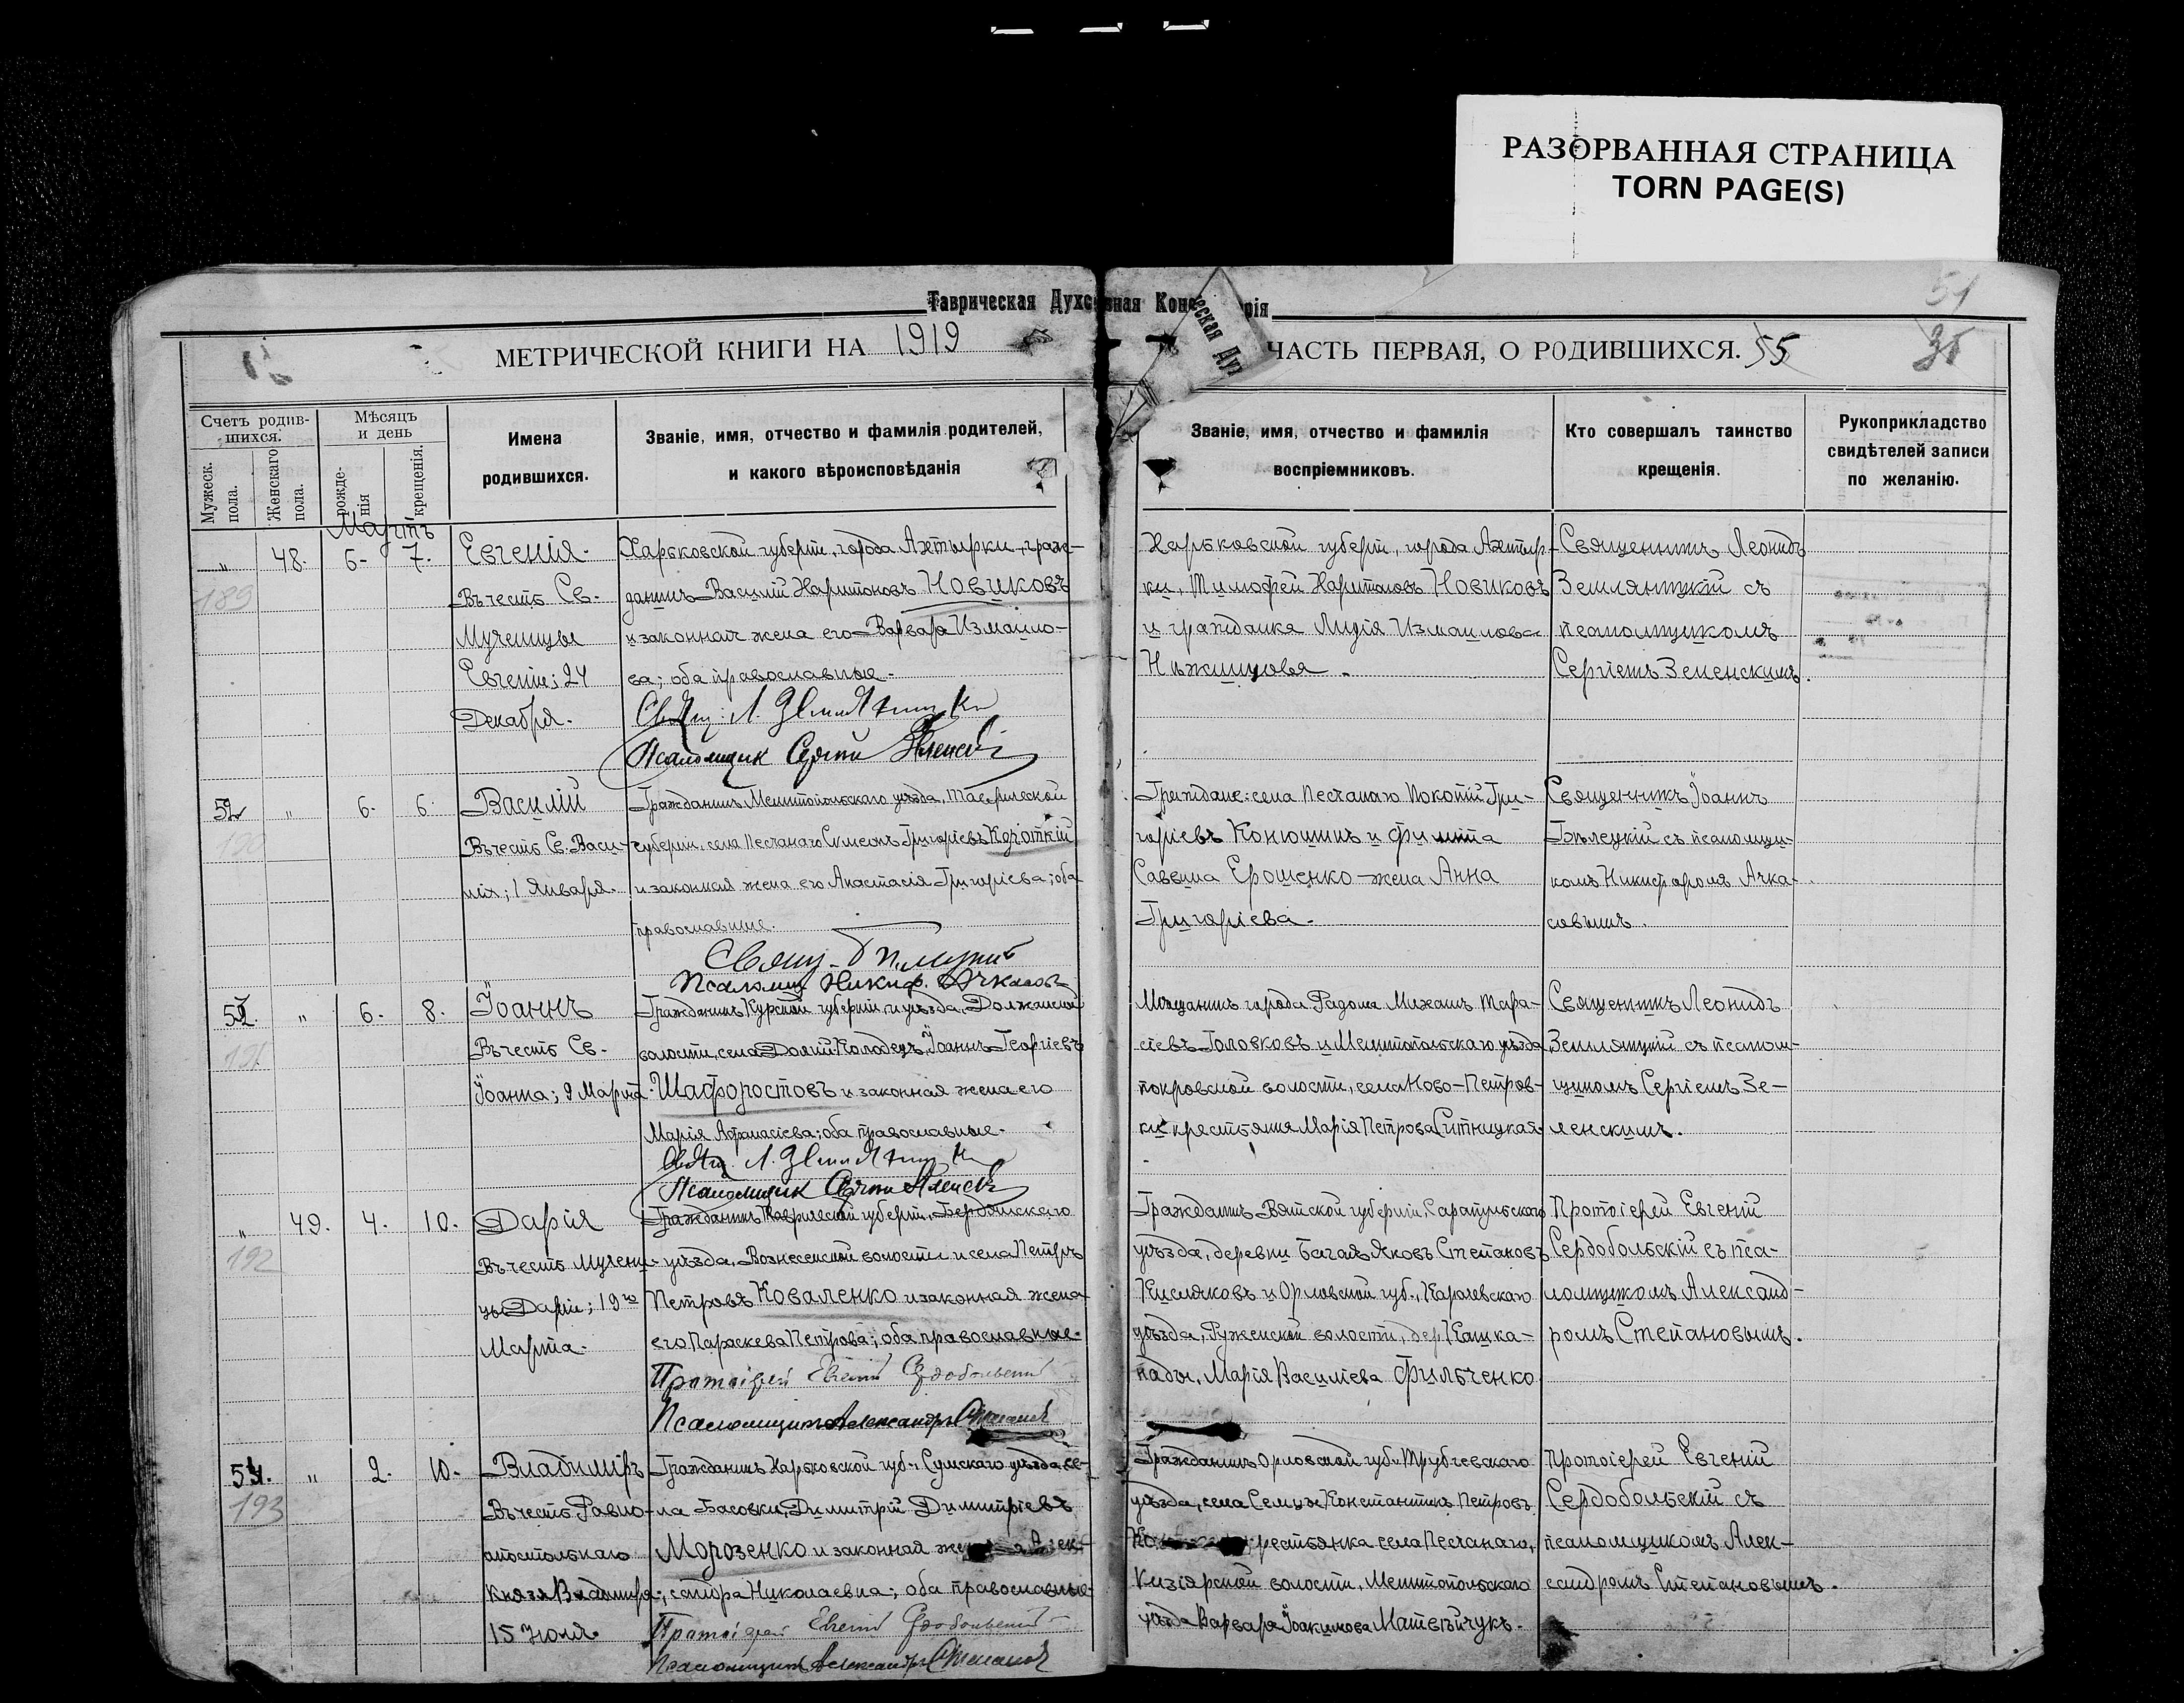 РАЗОРВАННАЯ СТРАНИЦА
TORN PAGE(S)
Таврическая Духовная Конс рія
еская Ду
51
МЕТРИЧЕСКОЙ КНИГИ НА 1919
ЧАСТЬ ПЕРВАЯ, О РОДИВШИХСЯ. 55
Счетъ родив-
шихся.
Мужеск.
пола.
Женскаго
пола.
Мѣсяцъ
и день
рожде-
нія
крещенія.
Имена
родившихся.
Званіе, имя, отчество и фамилія родителей,
и какого вѣроисповѣданія
Званіе, имя, отчество и фамилія
воспріемниковъ.
Кто совершалъ таинство
крещенія.
Рукоприкладство
свидѣтелей записи
по желанію.
Мартъ
„ 48. 6- 7.
189
Евгенія.
Въ честь Св.
Мученицы
Евгеніи; 24
Декабря.
Харьковской губерніи, города Ахтырки, граж-
данинъ Василій Харитоновъ Новиковъ
и законная жена его Варвара Измаило-
ва; оба православные.
Свящ. Л. Земляницкій
Псаломщик Сергій Зеленскій
Харьковской губерніи, города Ахтыр-
ки, Тимофей Харитоновъ Новиковъ
и гражданка Лидія Измаилова
Нѣжинцова.
Священникъ Леонидъ
Земляницкій съ
псаломщикомъ
Сергіемъ Зеленскимъ.
52 „ 6. 6.
190
Василій
Въ честь Св. Васи-
лія; 1 Января.
Гражданинъ Мелитопольскаго уѣзда, Таврической
губерніи, села Песчанаго Симеонъ Григорьевъ Короткій
и законная жена его Анастасія Григоріева; оба
православные.
Свящ. Бѣлецкій
Псаломщ Никиф. Ачкасовъ
Граждане: села Песчанаго Прокопій Гри-
горіевъ Конюшинъ и Филиппа
Саввина Ерошенко жена Анна
Григоріева.
Священникъ Іоаннъ
Бѣлецкій съ псаломщи-
комъ Никифоромъ Ачка-
совымъ.
„ 6. 8.
191
Іоаннъ
Въ честь Св.
Іоанна; 9 Марта
Гражданинъ Курской губерніи, и уѣзда, Должанской
волости, села Долгій Колодезь, Іоаннъ Георгіевъ
Шафоростовъ и законная жена его
Марія Афанасіева; оба православные.
Свящ. Л. Земляницкій
Псаломщик Сергій Зеленскій
Мѣщанинъ города Радома Михаилъ Тара-
сіевъ Головковъ и Мелитопольскаго уѣзда
покровской волости, села Ново-Петров-
ки крестьянка Марія Петрова Ситницкая.
Священникъ Леонидъ
Земляницкій съ псалом-
щикомъ Сергіемъ Зе-
ленскимъ.
„ 49. 4. 10.
192
Дарія
Въ честь Мучени-
цы Даріи; 19го
Марта.
Гражданинъ Таврической губерніи, Бердянскаго
уѣзда, Вознесенской волости и села Петръ
Петровъ Коваленко и законная жена
его Параскева Петрова; оба православные.
Протоіерей Евгеній Сердобольскій
Псаломщикъ Александръ Степановъ
Гражданинъ Вятской губерніи, Сарапульскаго
уѣзда, деревни Багая Яковъ Степановъ
Кисляковъ и Орловской губ., Карачевскаго
уѣзда, Руженской волости, дер. Кашка-
надъ, Марія Василіева Фильченко
Протоіерей Евгеній
Сердобольскій съ пса-
ломщикомъ Александ-
ромъ Степановымъ.
54. „ 2. 10.
193
Владиміръ
Въ честь Равно-
апостольнаго
Князя Владиміра;
15 Июля.
Гражданинъ Харьковской губ., Сумскаго уѣзда, се-
ла Басовки, Димитрій Димитріевъ
Морозенко и законная же Алек-
сандра Николаевна; оба православные.
Протоіерей Евгеній Сердобольскій
Псаломщикъ Александръ Степановъ
Гражданинъ Орловской губ. Трубчевскаго
уѣзда, села Семцы Константинъ Петровъ
Ко рестьянка села Песчанаго,
Кизіярской волости, Мелитопольскаго
уѣзда Варвара Іоакимова Матвѣйчукъ.
Протоіерей Евгеній
Сердобольскій съ
псаломщикомъ Алек-
сандромъ Степановымъ.